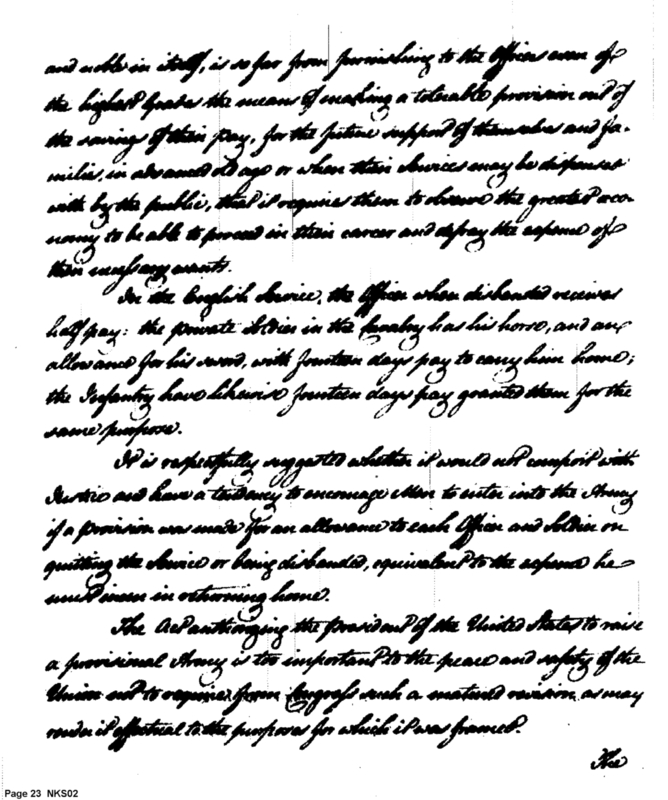 and noble in itself, is so far from furnishing to the Officers even of
the highest Grades the means of making a tolerable provision out of
the savings of their pay, for the future support of themselves and fa-
milies, in advanced old age or when their Services may be dispensed
with by the public, that it requires them to observe the greatest œco-
nomy to be able to proceed in their career and defray the expense of
their necessary wants.
In the English Service, the Officer when disbanded receives
half pay: the private Soldier in the Cavalry has his horse, and an
allowance for his sword, with fourteen days pay to carry him home;
the Infantry have likewise fourteen days pay granted them for the
same purpose.
It is respectfully suggested whether it would not comport with
Justice and have a tendancy to encourage Men to enter into the Army
if a provision was made for an allowance to each Officer and Soldier on
quitting the Service or being disbanded, equivalent to the expense he
must incur in returning home.
The Act authorizing the President of the United States to raise
a provisional Army is too important to the peace and safety of the
Union not to require from Congress such a matured revision as may
render it effectual to the purposes for which it was framed.
The
Page 23 NKS02